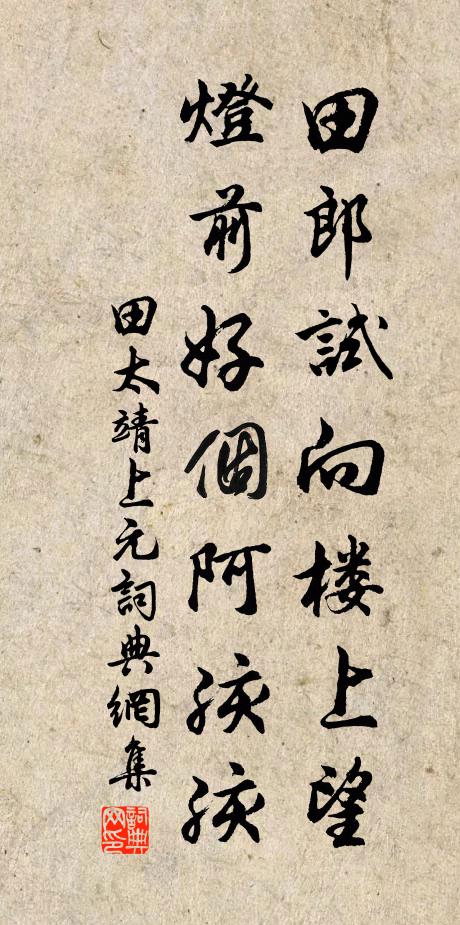 田郎試向楼上望
燈前好個阿孩孩
田太靖上元詞典網集
詞典網印